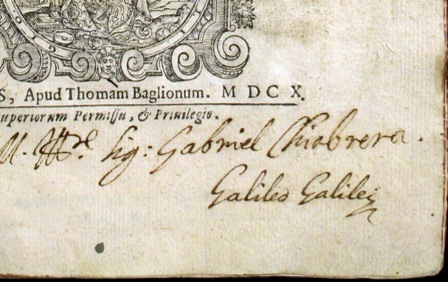 S, Apud Thomam Baglionum. M DC X.
uperiorum Permissu, & Priuilegio.
Sig: Gabriel Chiabrera.
Galileo Galilei